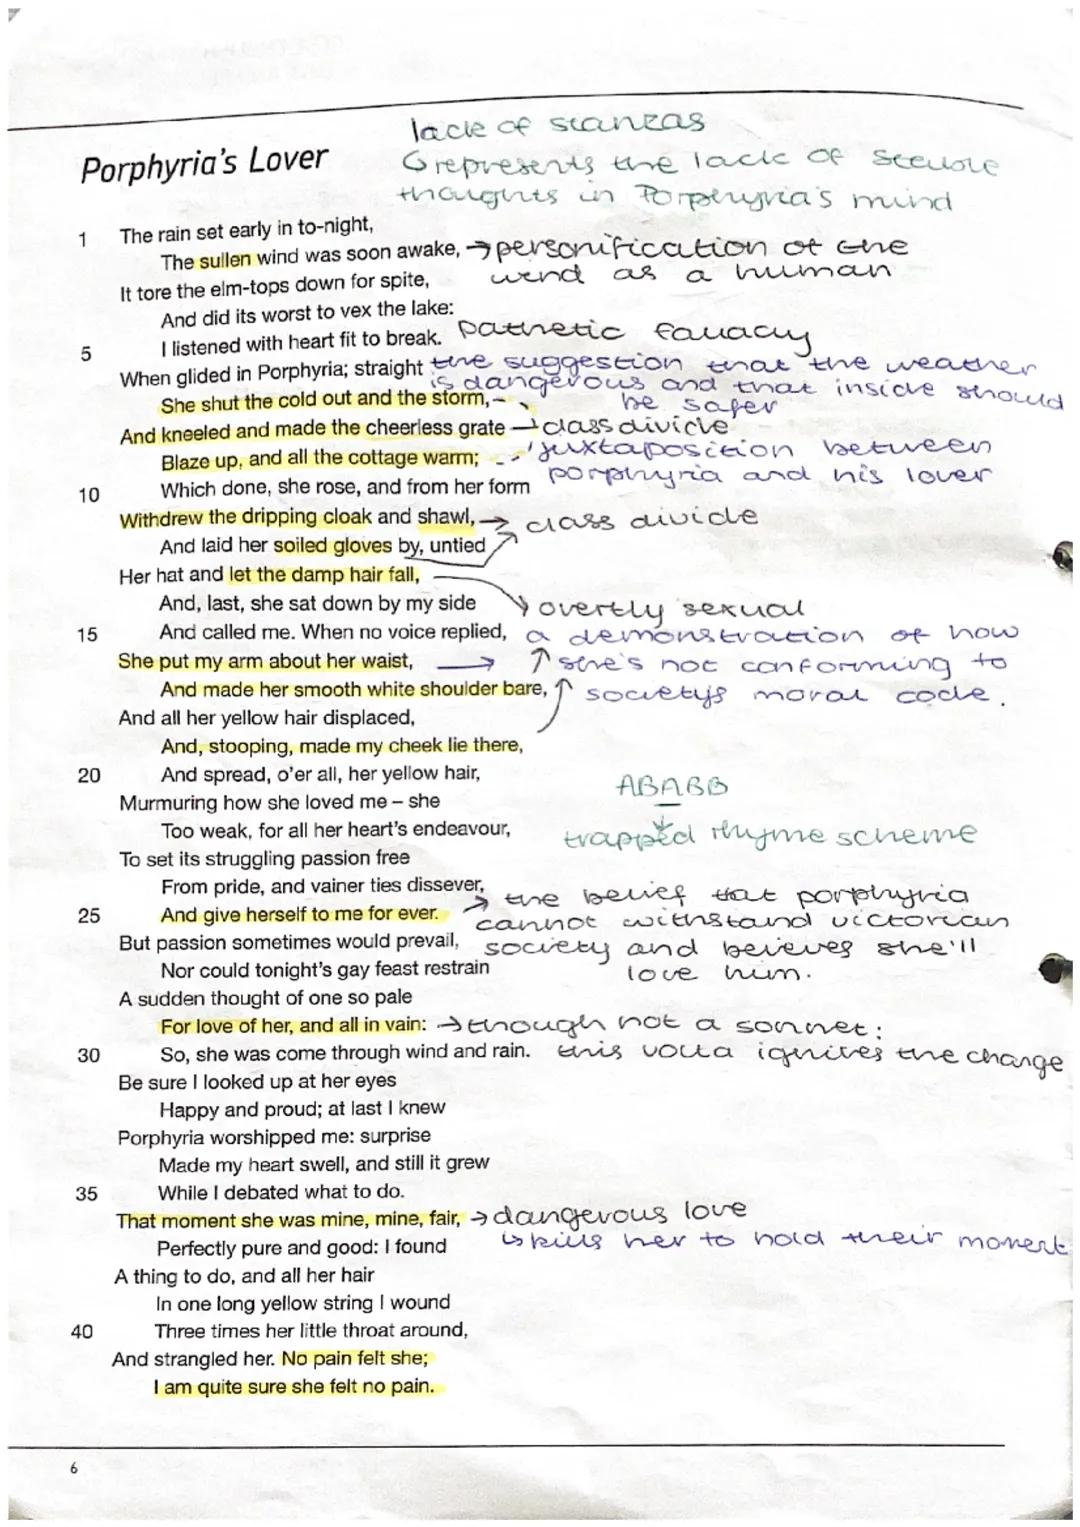 lack of stanzas
Porphyria's Lover
represents the lack of stable
thoughts in Porphyria's mind
1 The rain set early in to-night,
The sullen wind was soon awake, → personification of the
wind as a human
It tore the elm-tops down for spite,
And did its worst to vex the lake:
5 I listened with heart fit to break. pathetic fallacy
When glided in Porphyria; straight the suggestion that the weather
is dangerous and that inside should
be safer
She shut the cold out and the storm,
And kneeled and made the cheerless grate → class divide
Blaze up, and all the cottage warm; juxtaposition between
porphyria and his lover
10 Which done, she rose, and from her form
Withdrew the dripping cloak and shawl, → class divide
And laid her soiled gloves by, untied
Her hat and let the damp hair fall,
And, last, she sat down by my side overtly sexual
15 And called me. When no voice replied, a demonstration of how
She put my arm about her waist, → she's not conforming to
And made her smooth white shoulder bare, society's moral code.
And all her yellow hair displaced,
And, stooping, made my cheek lie there,
20 And spread, o'er all, her yellow hair,
ABABB
Murmuring how she loved me – she
Too weak, for all her heart's endeavour, trapped rhyme scheme
To set its struggling passion free
From pride, and vainer ties dissever,
→ the belief that porphyria
25 And give herself to me for ever. cannot withstand victorian
But passion sometimes would prevail, society and believes she'll
love him.
Nor could tonight's gay feast restrain
A sudden thought of one so pale
For love of her, and all in vain: → though not a sonnet:
30 So, she was come through wind and rain. this volta ignites the change
Be sure I looked up at her eyes
Happy and proud; at last I knew
Porphyria worshipped me: surprise
Made my heart swell, and still it grew
35 While I debated what to do.
That moment she was mine, mine, fair, → dangerous love
Perfectly pure and good: I found kills her to hold their moment
A thing to do, and all her hair
In one long yellow string I wound
40 Three times her little throat around,
And strangled her. No pain felt she;
I am quite sure she felt no pain.
6